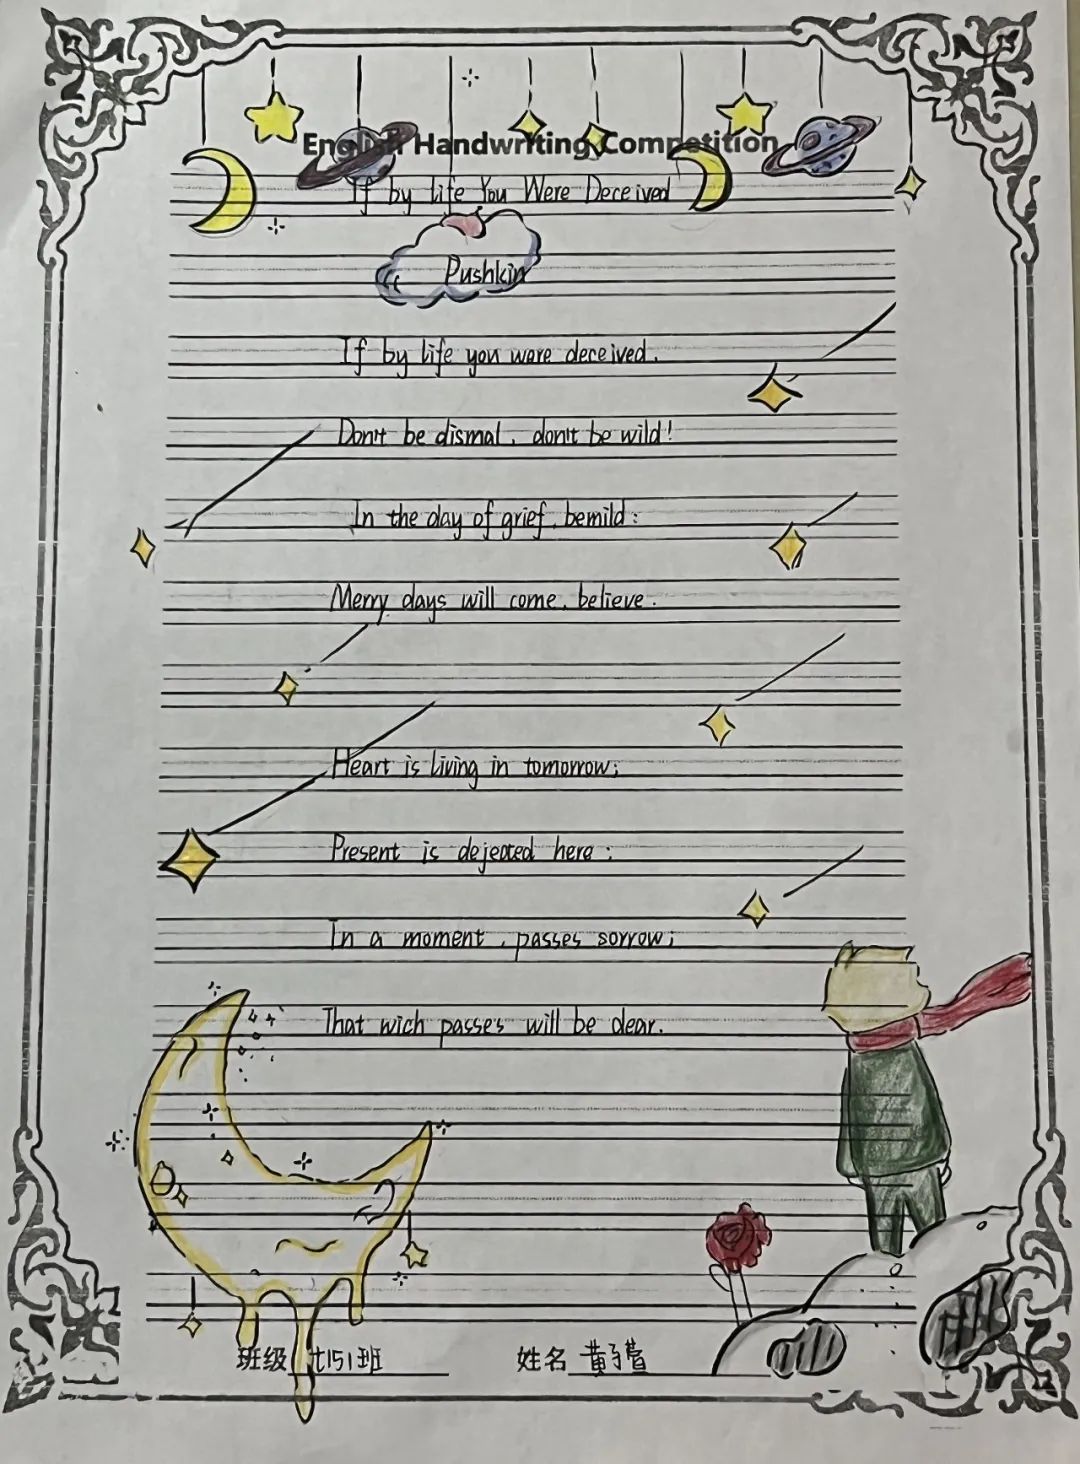 English Handwriting Competition
If by life You Were Deceived
Pushkin
If by life you were deceived.
Don't be dismal, don't be wild!
In the day of grief, bemild:
Merry days will come, believe.
Heart is living in tomorrow;
Present is dejected here:
In a moment, passes sorrow;
That wich passes will be dear.
班级 七151班 姓名 黄子萱